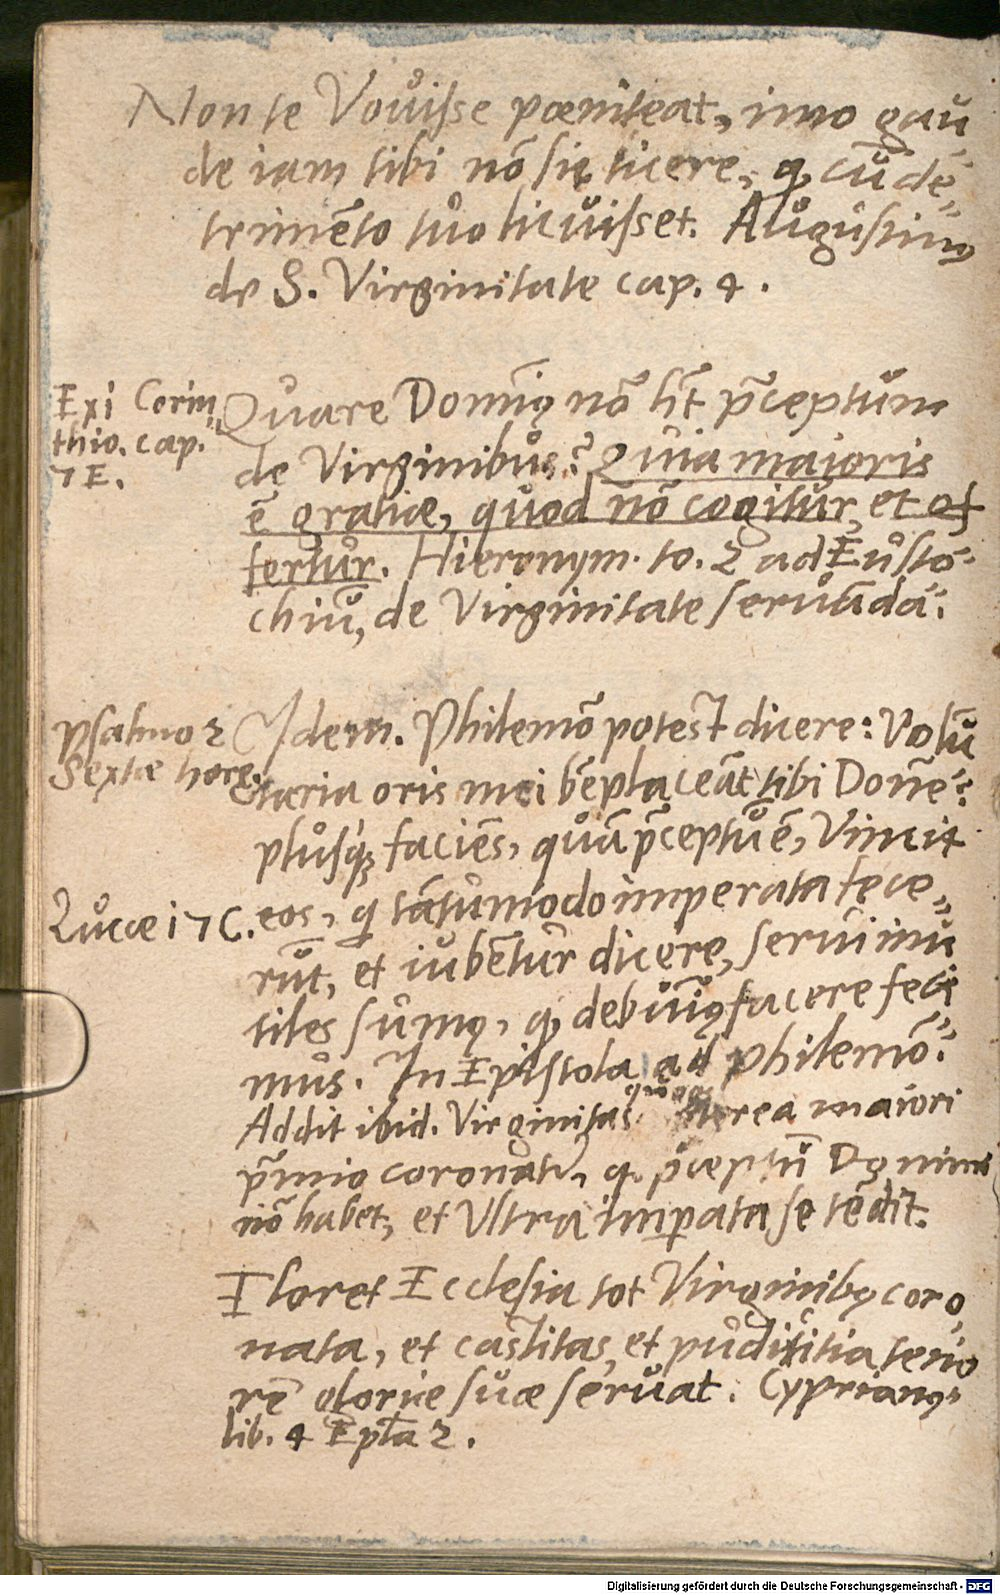 Non te Vovisse pœniteat, imo gau
de iam tibi nō sic licere, q, cū dē-
trimēto tuo licuisset. Augustinꝰ
de S. Virginitate cap. 4.
Ex i Corin
thio. cap.
7 E.
Quare Dominꝰ nō hēt p̄ceptum
de Virginibus? Quia maioris
ē gratiæ, quod nō cogitur, et of
fertur. Hieronym. to. 2 ad Eusto-
chiū, de Virginitate seruāda.
Psalmo 2
Sextæ horæ.
Idem. Philemō potest dicere: Volū
taria oris mei bēplaceāt tibi Dōne:
plusq; faciēs, quā p̄ceptū ē, Vincit
Lucæ i7 C.
eos, q tātūmodo imperata fece,,
rūt, et iubētur dicere, serui inu
tiles sumꝰ, q, debuimꝰ facere feci
mus. In Epistola ad Philemō.
Addit ibid. Virginitas maiori
p̄mio coronatr, q, p̄ceptū Domini
nō habet, et Ultra imperata se tēdit.
Floret Ecclesia tot Virginibꝰ coro,
nata, et castitas, et pudicitia teno
rē gloriæ suæ seruat. Cyprianꝰ
lib. 4 Epta 2.
Digitalisierung gefördert durch die Deutsche Forschungsgemeinschaft - DFG